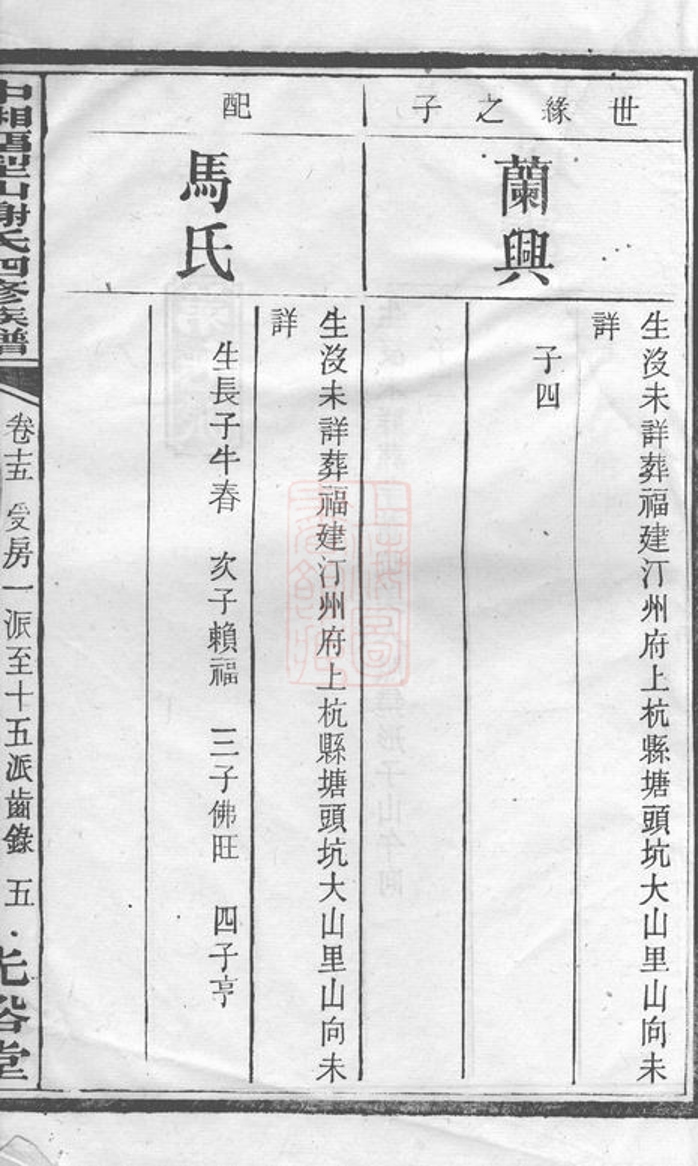 世緣之子
蘭興
生沒未詳葬福建汀州府上杭縣塘頭坑大山里山向未
詳
子四
配
馬氏
生沒未詳葬福建汀州府上杭縣塘頭坑大山里山向未
詳
生長子牛春 次子賴福 三子佛旺 四子亨
中湘 山謝氏四修族譜
卷十五 受房一派至十五派齒錄 五
光裕堂